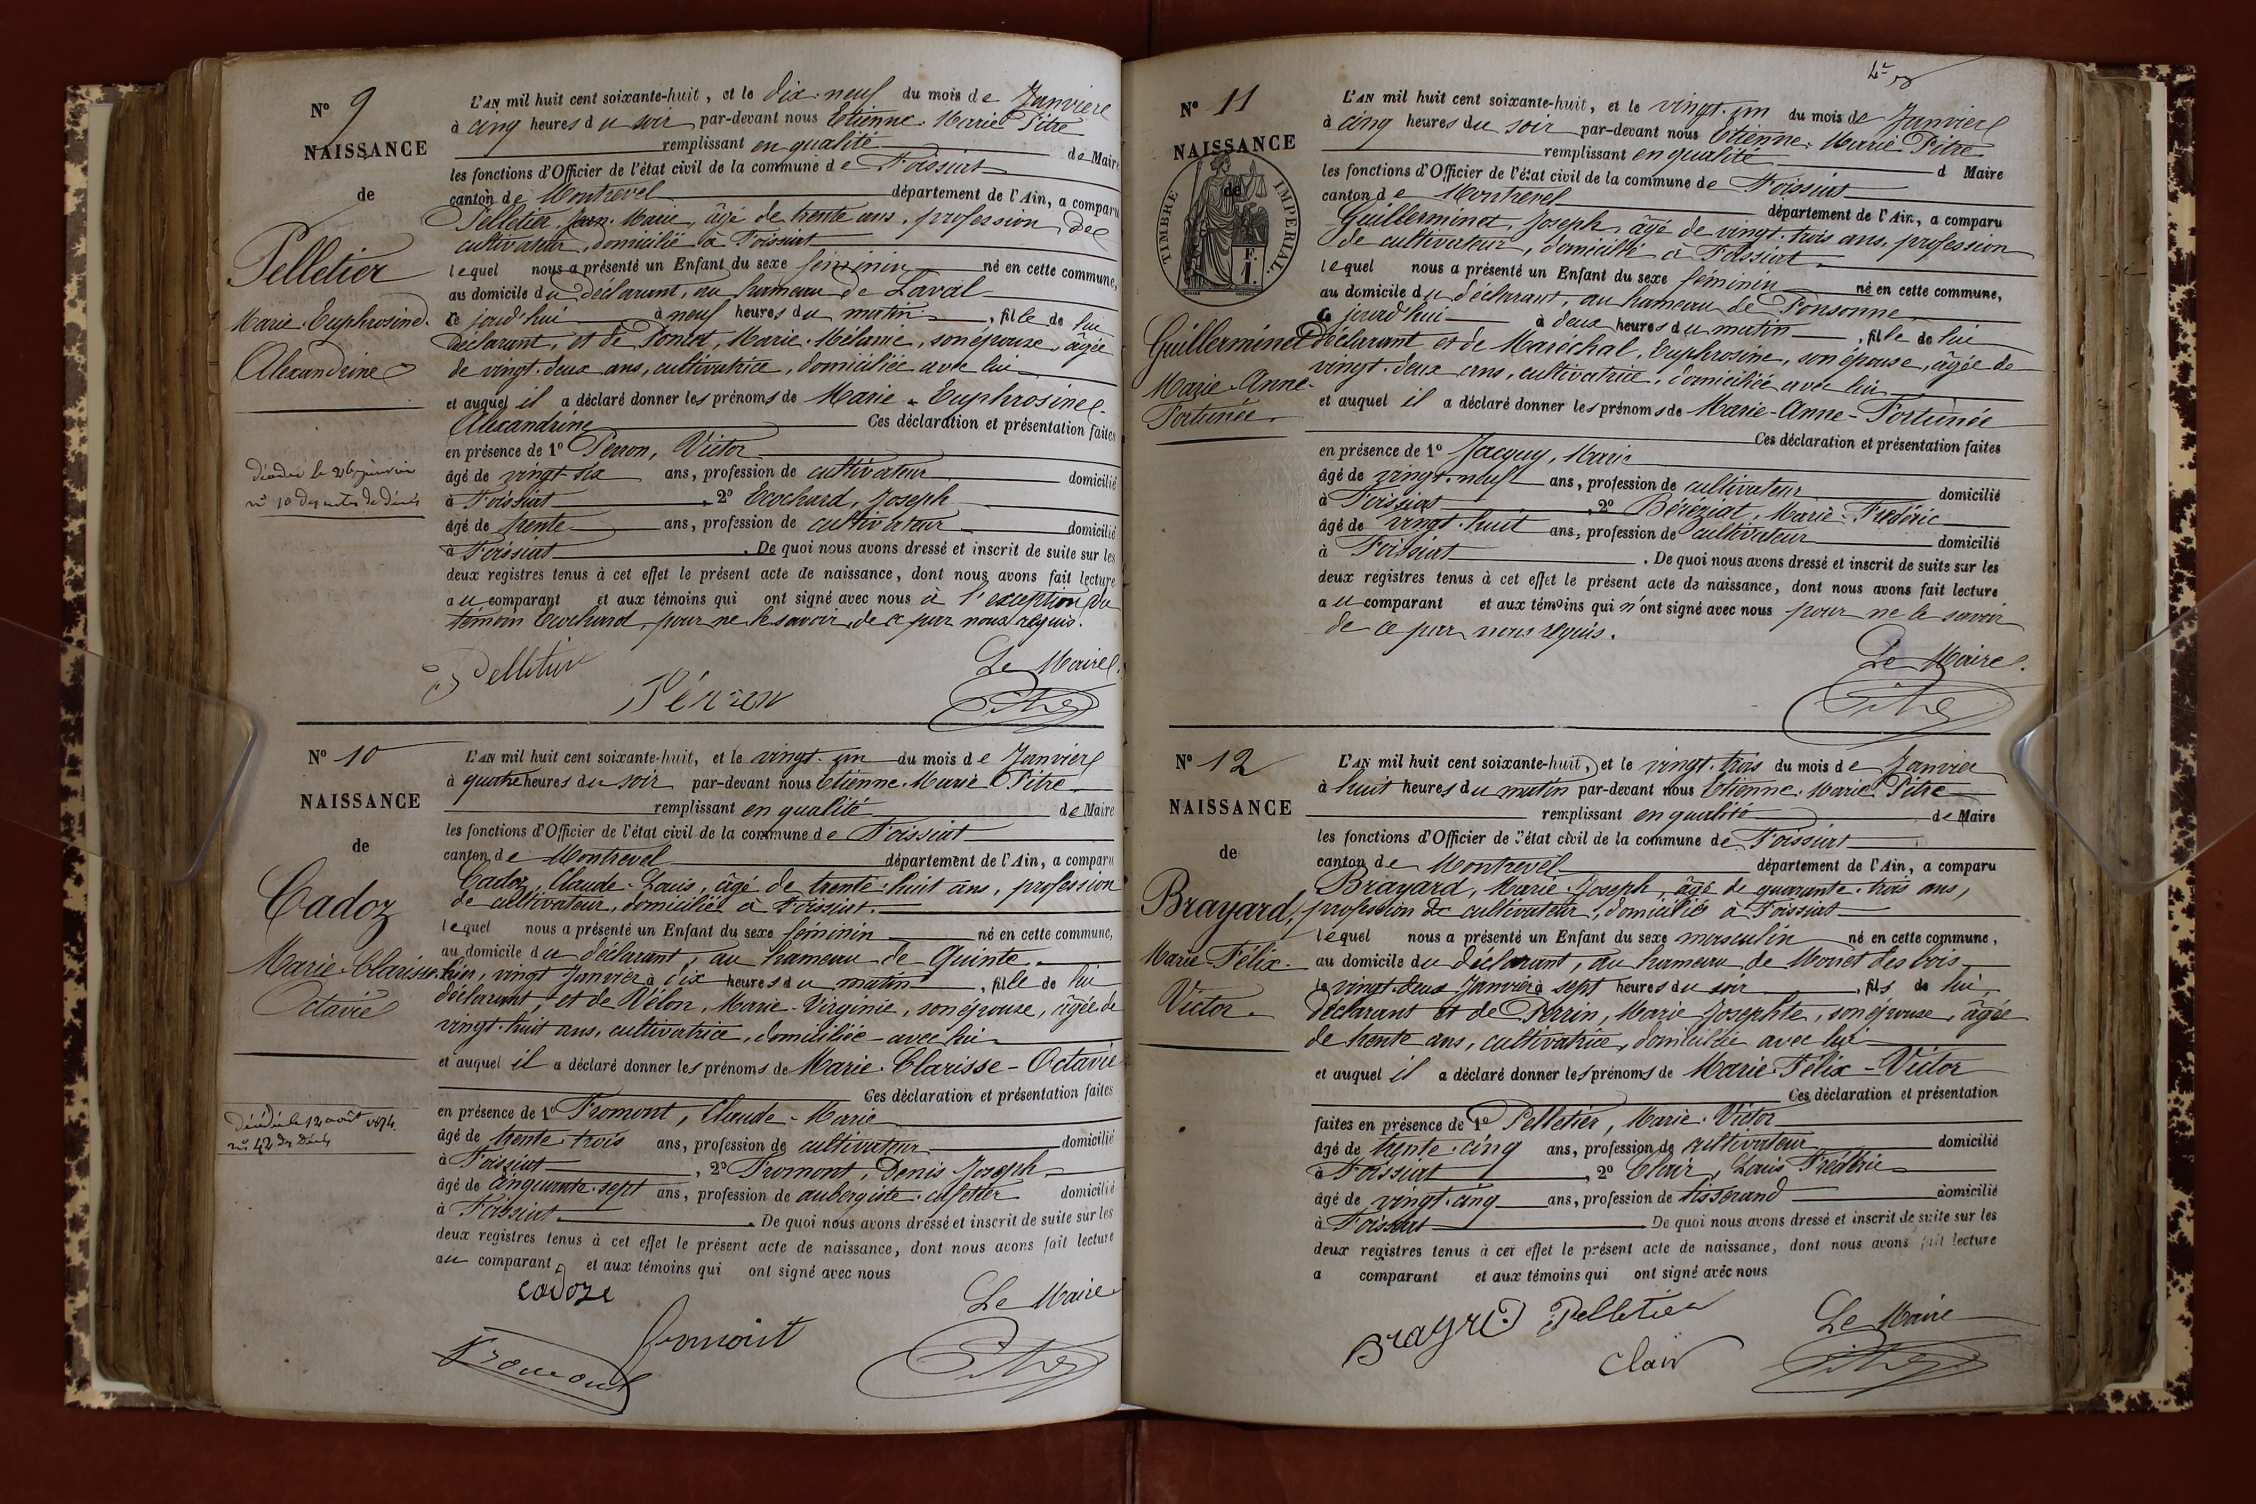 N° 9
NAISSANCE
de
Pelletier
Marie-Euphrosine-
Alexandrine
décédée le 26 janvier
n° 10 des actes de décès
L'AN mil huit cent soixante-huit, et le dix-neuf du mois de Janvier
à cinq heures du soir par-devant nous Etienne-Marie Pitre
remplissant en qualité de Maire
les fonctions d'Officier de l'état civil de la commune de Foissiat
canton de Montrevel département de l'Ain, a comparu
Pelletier, Jean-Marie, âgé de trente ans, profession de
cultivateur, domicilié à Foissiat
lequel nous a présenté un Enfant du sexe féminin né en cette commune,
au domicile du déclarant, au hameau de Laval
ce jourd'hui à neuf heures du matin, fille de lui
déclarant, et de Pontet, Marie-Mélanie, son épouse, âgée
de vingt-deux ans, cultivatrice, domiciliée avec lui
et auquel il a déclaré donner les prénoms de Marie-Euphrosine-
Alexandrine Ces déclaration et présentation faites
en présence de 1° Perron, Victor
âgé de vingt-six ans, profession de cultivateur domicilié
à Foissiat, 2° Ecochard, Joseph
âgé de trente ans, profession de cultivateur domicilié
à Foissiat. De quoi nous avons dressé et inscrit de suite sur les
deux registres tenus à cet effet le présent acte de naissance, dont nous avons fait lecture
au comparant et aux témoins qui ont signé avec nous à l'exception du
témoin Ecochard, pour ne le savoir, de ce par nous requis.
Pelletier
Pérron
Le Maire
Pitre
N° 10
NAISSANCE
de
Cadoz
Marie-Clarisse-
Octavie
Décédée le 12 août 1874
n° 42 des Décès
L'AN mil huit cent soixante-huit, et le vingt-un du mois de Janvier
à quatre heures du soir par-devant nous Etienne-Marie Pitre
remplissant en qualité de Maire
les fonctions d'Officier de l'état civil de la commune de Foissiat
canton de Montrevel département de l'Ain, a comparu
Cadoz, Claude-Louis, âgé de trente-huit ans, profession
de cultivateur, domicilié à Foissiat.
lequel nous a présenté un Enfant du sexe féminin né en cette commune,
au domicile du déclarant, au hameau de Quinte
hier, vingt Janvier à dix heures du matin, fille de lui
déclarant, et de Vélon, Marie-Virginie, son épouse, âgée de
vingt-huit ans, cultivatrice, domiciliée avec lui
et auquel il a déclaré donner les prénoms de Marie-Clarisse-Octavie
Ces déclaration et présentation faites
en présence de 1° Fromont, Claude-Marie
âgé de trente-trois ans, profession de cultivateur domicilié
à Foissiat, 2° Fromont, Denis Joseph
âgé de cinquante-sept ans, profession de aubergiste-cafetier domicilié
à Foissiat. De quoi nous avons dressé et inscrit de suite sur les
deux registres tenus à cet effet le présent acte de naissance, dont nous avons fait lecture
au comparant, et aux témoins qui ont signé avec nous
Cadoze
fromont
Fromont
Le Maire
Pitre
N° 11
NAISSANCE
de
TIMBRE IMPERIAL.
F.
1.
Guillerminet
Marie-Anne-
Fortunée.
L'AN mil huit cent soixante-huit, et le vingt-un du mois de Janvier
à cinq heures du soir par-devant nous Etienne-Marie Pitre
remplissant en qualité d Maire
les fonctions d'Officier de l'état civil de la commune de Foissiat
canton de Montrevel département de l'Ain, a comparu
Guillerminet, Joseph, âgé de vingt-trois ans, profession
de cultivateur, domicilié à Foissiat
lequel nous a présenté un Enfant du sexe féminin né en cette commune,
au domicile du déclarant, au hameau de Ponsonne
ce jourd'hui à deux heures du matin, fille de lui
déclarant et de Maréchal, Euphrosine, son épouse, âgée de
vingt-deux ans, cultivatrice, domiciliée avec lui
et auquel il a déclaré donner les prénoms de Marie-Anne-Fortunée
Ces déclaration et présentation faites
en présence de 1° Jacquy, Marie
âgé de vingt-neuf ans, profession de cultivateur domicilié
à Foissiat, 2° Béréziat, Marie-Frédéric
âgé de vingt-huit ans, profession de cultivateur domicilié
à Foissiat. De quoi nous avons dressé et inscrit de suite sur les
deux registres tenus à cet effet le présent acte de naissance, dont nous avons fait lecture
au comparant et aux témoins qui n'ont signé avec nous pour ne le savoir
de ce par nous requis.
Le Maire.
Pitre
N° 12
NAISSANCE
de
Brayard,
Marie-Félix-
Victor.
L'AN mil huit cent soixante-huit, et le vingt-trois du mois de Janvier
à huit heures du matin par-devant nous Etienne-Marie Pitre
remplissant en qualité de Maire
les fonctions d'Officier de l'état civil de la commune de Foissiat
canton de Montrevel département de l'Ain, a comparu
Brayard, Marie-Joseph, âgé de quarante-trois ans,
profession de cultivateur, domicilié à Foissiat
lequel nous a présenté un Enfant du sexe masculin né en cette commune,
au domicile du déclarant, au hameau de Monet des bois
le vingt-deux Janvier à sept heures du soir, fils de lui,
déclarant et de Perrin, Marie Josephte, son épouse, âgée
de trente ans, cultivatrice, domiciliée avec lui
et auquel il a déclaré donner les prénoms de Marie-Félix-Victor
Ces déclaration et présentation
faites en présence de 1° Pelletier, Marie-Victor
âgé de trente-cinq ans, profession de cultivateur domicilié
à Foissiat, 2° Clair, Louis Frédéric
âgé de vingt-cinq ans, profession de tisserand domicilié
à Foissiat. De quoi nous avons dressé et inscrit de suite sur les
deux registres tenus à cet effet le présent acte de naissance, dont nous avons fait lecture
a comparant et aux témoins qui ont signé avec nous
Brayrd
Pelletier
Clair
Le Maire
Pitre